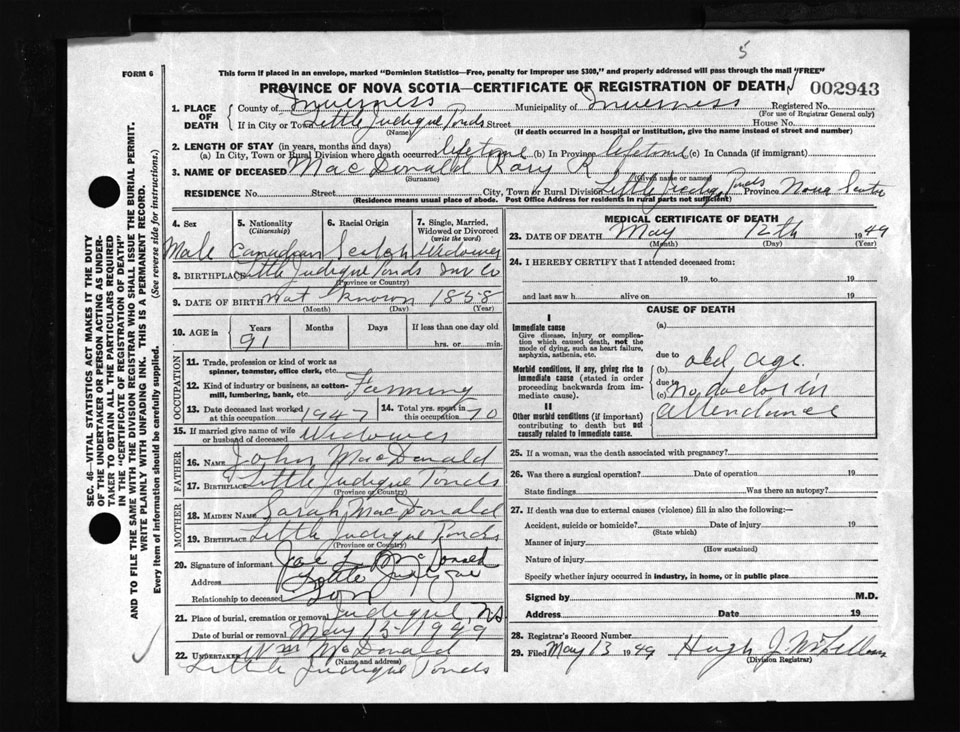 5
FORM 6
This form if placed in an envelope, marked "Dominion Statistics—Free, penalty for improper use $300," and properly addressed will pass through the mail "FREE"
PROVINCE OF NOVA SCOTIA—CERTIFICATE OF REGISTRATION OF DEATH
002943
1. PLACE OF DEATH
County of Inverness Municipality of Inverness Registered No.
(For use of Registrar General only)
If in City or Town Little Judique Ponds Street House No.
(Name) (If death occurred in a hospital or institution, give the name instead of street and number)
2. LENGTH OF STAY (in years, months and days)
(a) In City, Town or Rural Division where death occurred lifetime (b) In Province lifetime (c) In Canada (if immigrant)
3. NAME OF DECEASED MacDonald Rory R
(Surname) (Given name or names)
RESIDENCE No. Street City, Town or Rural Division Little Judiq. Ponds Province Nova Scotia
(Residence means usual place of abode. Post Office Address for residents in rural parts not sufficient)
4. Sex 5. Nationality 6. Racial Origin 7. Single, Married, Widowed or Divorced
(Citizenship) (write the word)
Male Canadian Scotch Widower
8. BIRTHPLACE Little Judique Ponds Inv Co
(Province or Country)
9. DATE OF BIRTH Not known 1858
(Month) (Day) (Year)
10. AGE in Years Months Days If less than one day old
91 hrs. or min.
OCCUPATION
11. Trade, profession or kind of work as spinner, teamster, office clerk, etc.
12. Kind of industry or business, as cotton-mill, lumbering, bank, etc. Farming
13. Date deceased last worked at this occupation 1947 14. Total yrs. spent in this occupation 70
15. If married give name of wife or husband of deceased Widower
FATHER
16. NAME John MacDonald
17. BIRTHPLACE Little Judique Ponds
(Province or Country)
MOTHER
18. MAIDEN NAME Sarah MacDonald
19. BIRTHPLACE Little Judique Ponds
(Province or Country)
20. Signature of informant Joe McDonald
Address Little Judique
Relationship to deceased Son
21. Place of burial, cremation or removal Judique, NS
Date of burial or removal May 15 1949
22. UNDERTAKER Wm McDonald
(Name and address)
Little Judique Ponds
MEDICAL CERTIFICATE OF DEATH
23. DATE OF DEATH May 12th 1949
(Month) (Day) (Year)
24. I HEREBY CERTIFY that I attended deceased from:
19 to 19
and last saw h alive on 19
CAUSE OF DEATH
I
Immediate cause
Give disease, injury or complication which caused death, not the mode of dying, such as heart failure, asphyxia, asthenia, etc.
Morbid conditions, if any, giving rise to immediate cause (stated in order proceeding backwards from immediate cause).
II
Other morbid conditions (if important) contributing to death but not causally related to immediate cause.
(a)
due to
(b) old age
due to
(c) No doctor in
attendance
25. If a woman, was the death associated with pregnancy?
26. Was there a surgical operation? Date of operation 19
State findings Was there an autopsy?
27. If death was due to external causes (violence) fill in also the following:—
Accident, suicide or homicide? Date of injury 19
(State which)
Manner of injury
(How sustained)
Nature of injury
Specify whether injury occurred in industry, in home, or in public place
Signed by M.D.
Address Date 19
28. Registrar's Record Number
29. Filed May 13 1949 Hugh J.
(Division Registrar)
SEC. 46—VITAL STATISTICS ACT MAKES IT THE DUTY
OF THE UNDERTAKER OR PERSON ACTING AS UNDER-
TAKER TO OBTAIN ALL THE PARTICULARS REQUIRED
IN THE "CERTIFICATE OF REGISTRATION OF DEATH"
AND TO FILE THE SAME WITH THE DIVISION REGISTRAR WHO SHALL ISSUE THE BURIAL PERMIT.
WRITE PLAINLY WITH UNFADING INK. THIS IS A PERMANENT RECORD.
Every item of information should be carefully supplied. (See reverse side for instructions.)